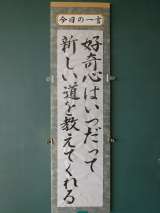 今日の一言
好奇心はいつだって
新しい道を教えてくれる